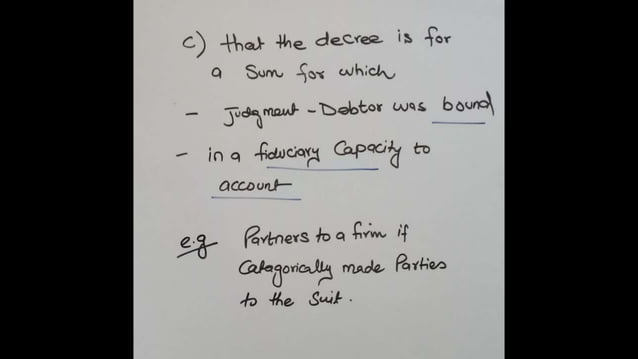 c) that the decree is for
a Sum for which
- Judgment - Debtor was bound
- in a fiduciary Capacity to
account
e.g Partners to a firm if
Catagorically made Parties
to the Suit.